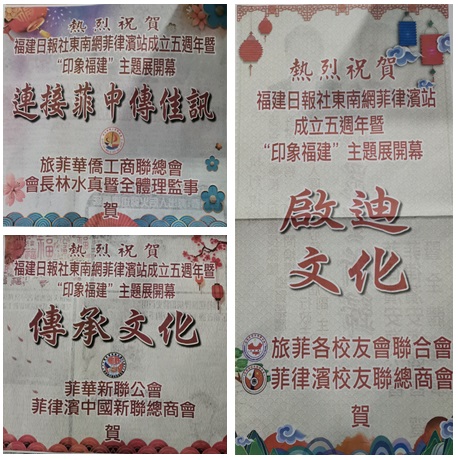 熱烈祝賀
福建日報社東南網菲律濱站成立五週年暨
“印象福建”主題展開幕
連接菲中傳佳訊
旅菲華僑工商聯總會
會長林水真暨全體理監事
賀
熱烈祝賀
福建日報社東南網菲律濱站成立五週年暨
“印象福建”主題展開幕
傳承文化
菲華新聯公會
菲律濱中國新聯總商會
賀
熱烈祝賀
福建日報社東南網菲律濱站
成立五週年暨
“印象福建”主題展開幕
啟迪
文化
旅菲各校友會聯合會
菲律濱校友聯總商會
賀